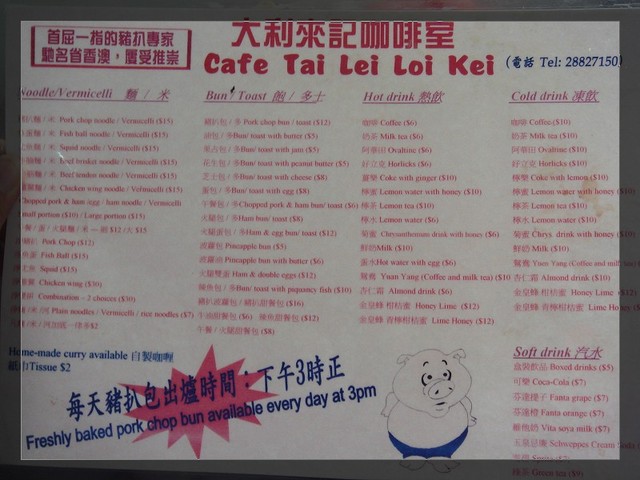 首屈一指的豬扒專家
馳名省香澳，屢受推崇
大利來記咖啡室
Cafe Tai Lei Loi Kei
(電話 Tel: 28827150)
Noodle/Vermicelli 麵 / 米
Pork chop noodle / Vermicelli ($15)
Fish ball noodle / Vermicelli ($15)
Squid noodle / Vermicelli ($15)
Beef brisket noodle / Vermicelli ($15)
Beef tendon noodle / Vermicelli ($15)
Chicken wing noodle / Vermicelli ($15)
Chopped pork & ham /egg / ham noodle / Vermicelli
Small portion ($10) / Large portion ($15)
Pork Chop ($12)
Fish Ball ($15)
Squid ($15)
Chicken wing ($30)
Combination – 2 choices ($30)
Plain noodles / Vermicelli / rice noodles ($7)
Home-made curry available 自製咖喱
紙巾Tissue $2
Bun / Toast 飽 / 多士
豬扒包 / 多 Pork chop bun / toast ($12)
油包 / 多Bun/ toast with butter ($5)
果占包 / 多Bun/ toast with jam ($5)
花生包 / 多Bun/ toast with peanut butter ($5)
芝士包 / 多Bun/ toast with cheese ($8)
蛋包 / 多Bun/ toast with egg ($8)
午餐包 / 多Chopped pork & ham bun/ toast ($6)
火腿包 / 多Ham bun/ toast ($8)
火腿蛋包 / 多Ham & egg bun/ toast ($12)
菠蘿包 Pineapple bun ($5)
菠蘿油 Pineapple bun with butter ($6)
火腿雙蛋 Ham & double eggs ($12)
辣魚包 / 多Bun/ toast with piquancy fish ($10)
豬扒菠蘿包 / 豬扒甜餐包 ($16)
牛油甜餐包 ($6) 辣魚甜餐包 ($12)
午餐 / 火腿甜餐包 ($8)
Hot drink 熱飲
咖啡 Coffee ($6)
奶茶 Milk tea ($6)
阿華田 Ovaltine ($6)
好立克 Horlicks ($6)
薑樂 Coke with ginger ($10)
檸蜜 Lemon water with honey ($10)
檸茶 Lemon tea ($10)
檸水 Lemon water ($6)
菊蜜 Chrysanthemum drink with honey ($6)
鮮奶Milk ($10)
蛋水Hot water with egg ($6)
鴛鴦 Yuan Yang (Coffee and milk tea) ($10
杏仁霜 Almond drink ($6)
金皇蜂 柑桔蜜 Honey Lime ($12)
金皇蜂 青檸柑桔蜜 Lime Honey ($12)
Cold drink 凍飲
咖啡 Coffee ($10)
奶茶 Milk tea ($10)
阿華田 Ovaltine ($10)
好立克 Horlicks ($10)
檸樂 Coke with lemon ($10)
檸蜜 Lemon water with honey ($10)
檸茶 Lemon tea ($10)
檸水 Lemon water ($10)
菊蜜 Chrys. drink with honey ($10)
鮮奶 Milk ($10)
鴛鴦 Yuan Yang (Coffee and milk tea
杏仁霜 Almond drink ($10)
金皇蜂 柑桔蜜 Honey Lime ($12)
金皇蜂 青檸柑桔蜜 Lime Honey
Soft drink 汽水
盒裝飲品 Boxed drinks ($5)
可樂 Coca-Cola ($7)
芬達提子 Fanta grape ($7)
芬達橙 Fanta orange ($7)
維他奶 Vita soya milk ($7)
玉泉忌廉 Schweppes Cream Soda
Sprite ($7)
綠茶 Green tea ($9)
每天豬扒包出爐時間：下午3時正
Freshly baked pork chop bun available every day at 3pm